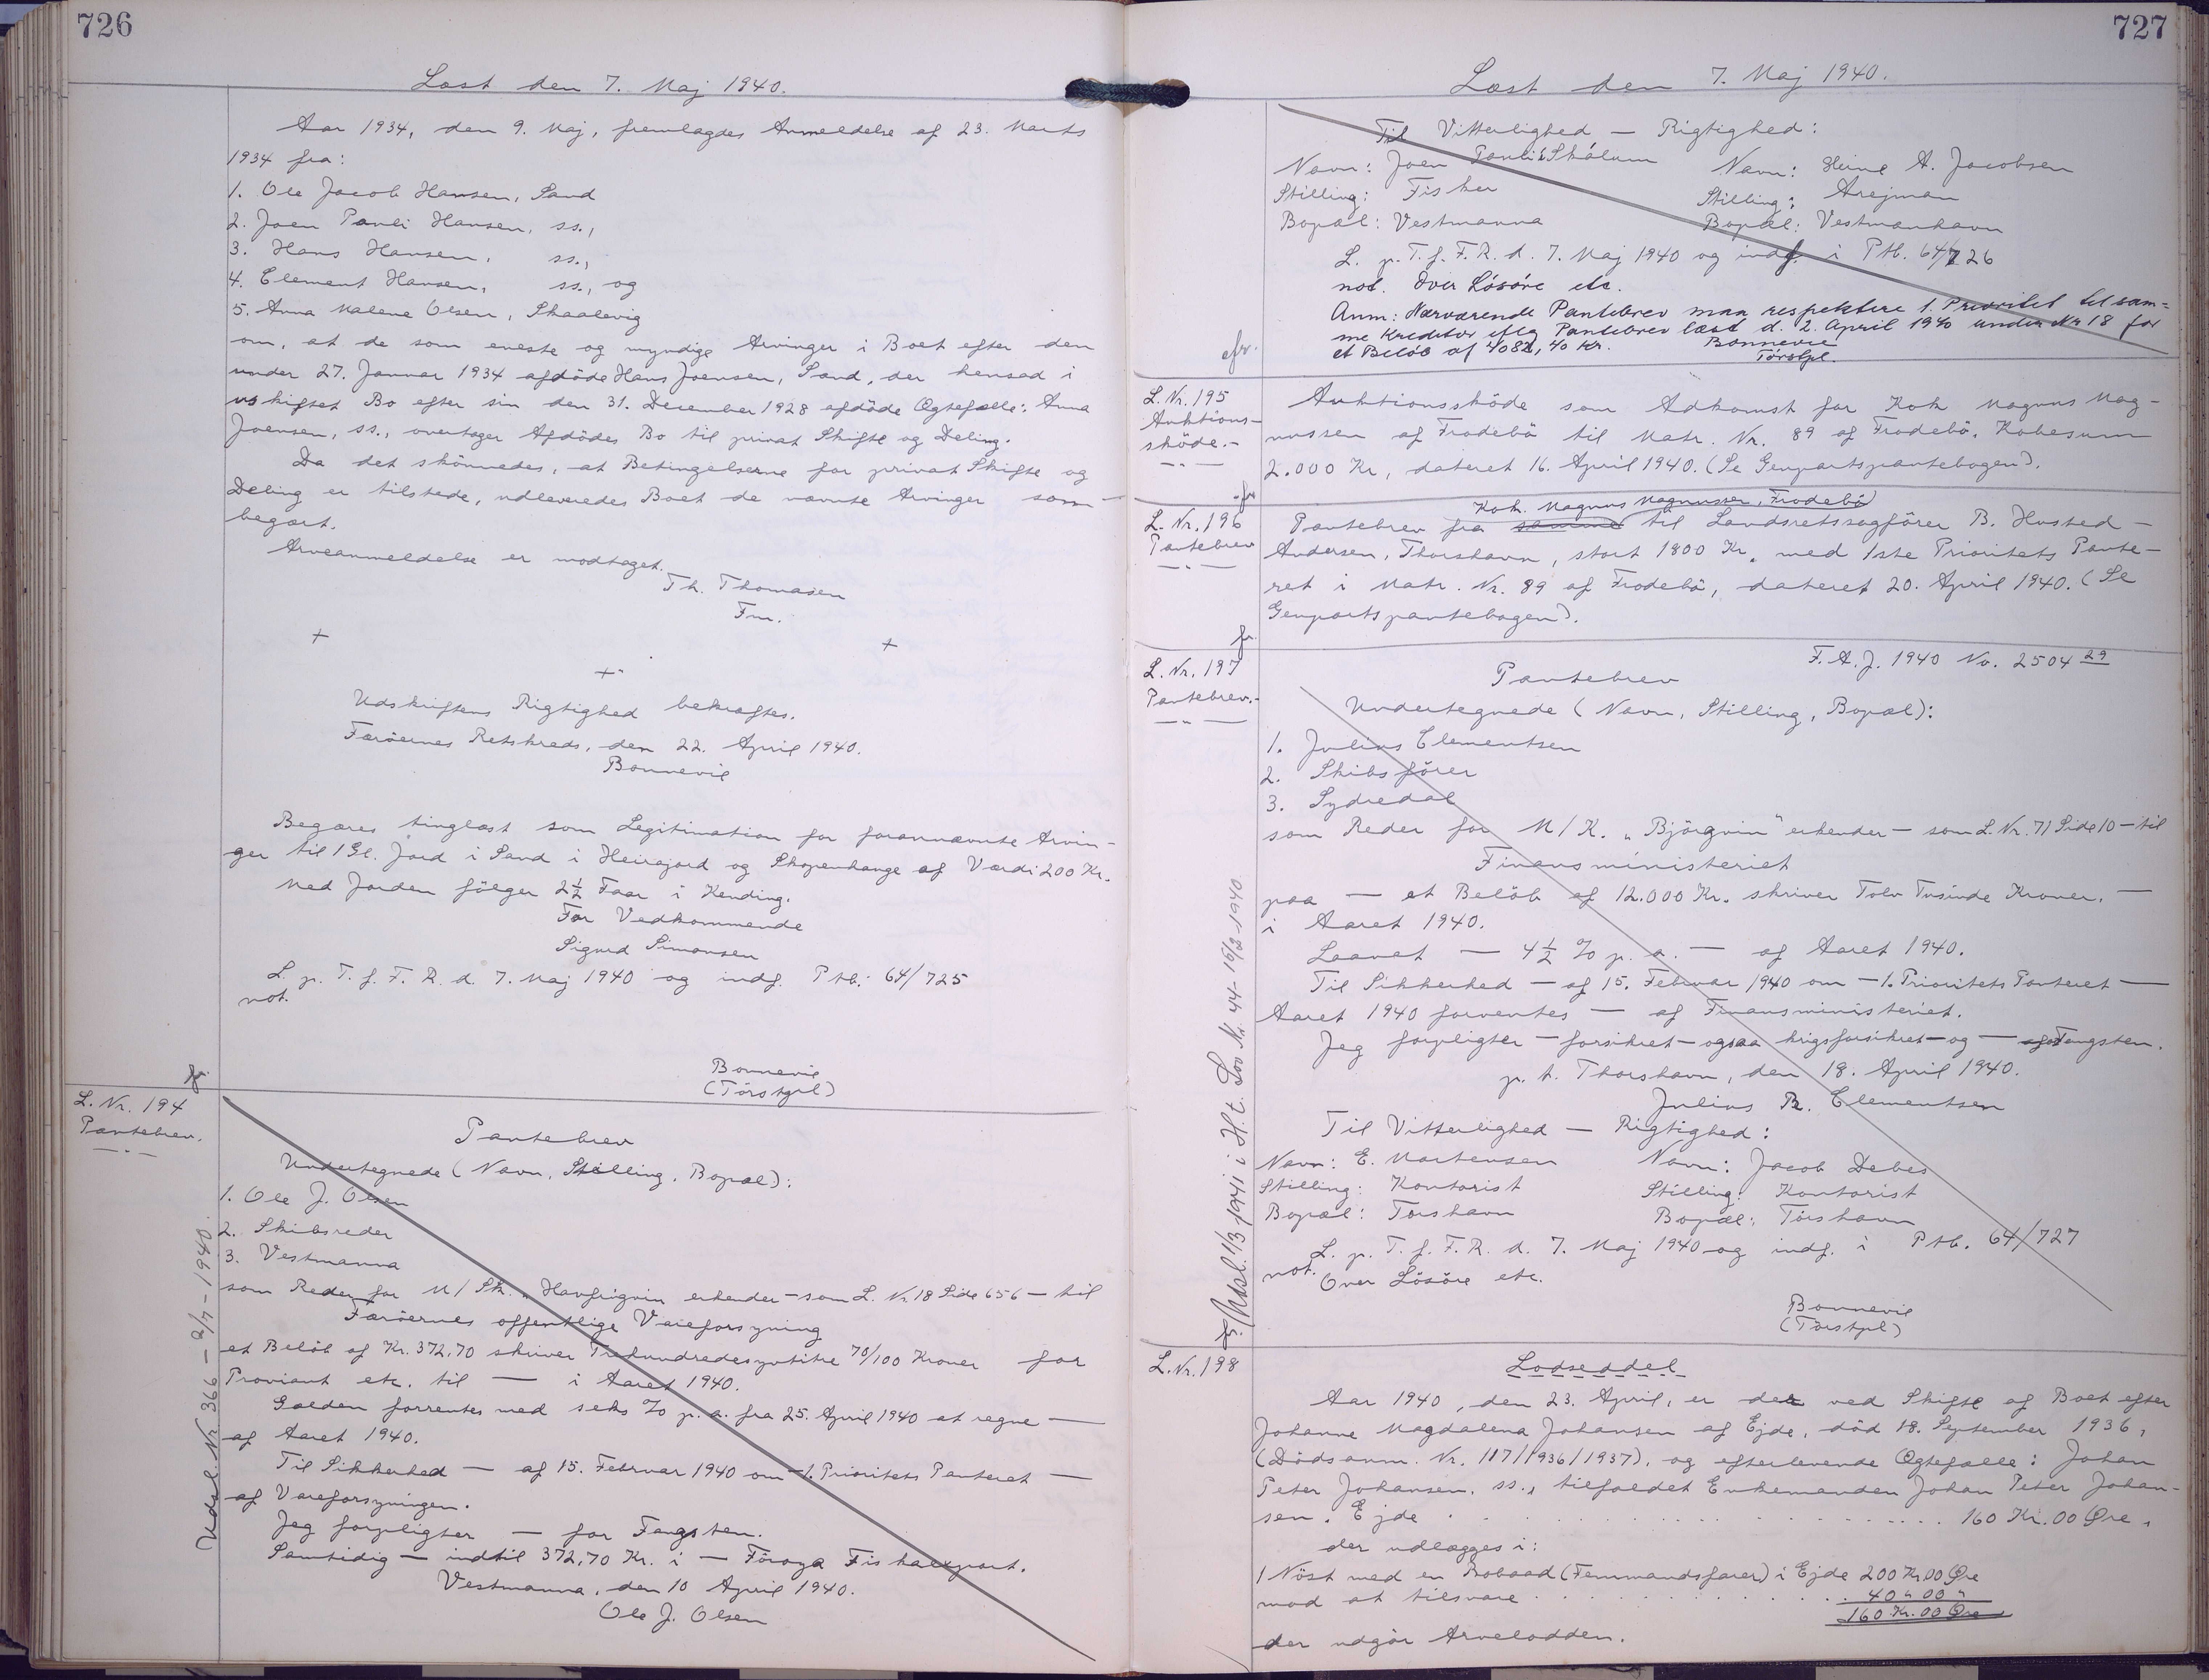 726
Læst den 7. Maj 1940.
Aar 1934, den 9. Maj, fremlagdes Anmeldelse af 23. Marts
1934 fra:
1. Ole Jacob Hansen, Sand
2. Joen Pauli Hansen, ss.,
3. Hans Hansen, ss.,
4. Clement Hansen, ss., og
5. Anna Malene Olsen, Skaalevig
om, at de som eneste og myndige Arvinger i Boet efter den
under 27. Januar 1934 afdöde Hans Joensen, Sand, der hensad i
uskiftet Bo efter sin den 31. December 1928 afdöde Ægtefælle: Anna
Joensen, ss., overtager Afdödes Bo til privat Skifte og Deling.
Da det skönnedes, at Betingelserne for privat Skifte og
Deling er tilstede, udleveredes Boet de nævnte Arvinger som
begært.
Arveanmeldelse er modtaget.
Th. Thomasen
Fm.
+ +
+
Udskriftens Rigtighed bekræftes.
Færöernes Retskreds, den 22. April 1940.
Bonnevie
Begæres tinglæst som Legitimation for forannævnte Arvin-
ger til 1 Gl. Jord i Sand i Heirajord og Skopenhauge af Værdi 200 Kr.
Med Jorden fölger 2½ Faar i Kending.
For Vedkommende
Sigurd Simonsen
L. p. T. f. F. R. d. 7. Maj 1940 og indf. Ptb: 64/725
not.
Bonnevie
(Törstgpl)
L. Nr. 194
Pantebrev.
Pantebrev
Undertegnede (Navn, Stilling, Bopæl):
1. Ole J. Olsen
2. Skibsreder
3. Vestmanna
som Reder for M/Sk. "Havfrigvin erkender - som L. Nr 18 Side 656 - til
Færöernes offentlige Vareforsyning
et Belöb af Kr. 372,70 skriver Trehundredesyvtitre 70/100 Kroner for
Proviant etc. til — i Aaret 1940.
Gælden forrentes med seks % p.a. fra 25. April 1940 at regne —
af Aaret 1940.
Til Sikkerhed — af 15. Februar 1940 om - 1. Prioritets Panteret —
af Vareforsyningen.
Jeg forpligter — for Fangsten.
Samtidig — indtil 372,70 Kr. i — Föroya Fiskaexport.
Vestmanna, den 10 April 1940.
Ole J. Olsen
Udsl. Nr. 366 - 2/7 - 1940.
727
Læst den 7. Maj 1940.
Til Vitterlighed — Rigtighed:
Navn: Joen Pauli Skálum Navn: Heine A. Jacobsen
Stilling: Fisker Stilling: Arejman
Bopæl: Vestmanna Bopæl: Vestmanhavn
L. p. T. f. F. R. d. 7. Maj 1940 og indf. i Ptb. 64/726
not. Over Lösöre etc.
Anm: Nærværende Pantebrev maa respektere 1. Prioritet til sam-
me Kreditor iflg Pantebrev læst d. 2. April 1940 under Nr 18 for
et Belöb af 4082,40 Kr. Bonnevie
Törstgpl.
L. Nr. 195
Auktions-
sköde.-
Auktionssköde som Adkomst for Kok Magnus Mag-
nussen af Frodebö til Matr. Nr. 89 af Frodebö. Købesum
2.000 Kr, dateret 16. April 1940. (Se Genpartspantebogen).
L. Nr. 196
Pantebrev
Kok. Magnus Magnussen, Frodebö
Pantebrev fra samme til Landsretssagförer B. Husted-
Andersen, Thorshavn, stort 1800 Kr. med 1ste Prioritets Pante-
ret i Matr. Nr. 89 af Frodebö, dateret 20. April 1940. (Se
Genpartspantebogen).
L. Nr. 197
Pantebrev.-
F. A. J. 1940 No. 2504 29
Pantebrev
Undertegnede (Navn, Stilling, Bopæl):
1. Julius Clementsen
2. Skibsförer
3. Sydredal
som Reder for M/K. "Björgvin" erkender - som L. Nr. 71 Side 10 - til
Finansministeriet
paa — et Belöb af 12.000 Kr. skriver Tolv Tusinde Kroner. —
i Aaret 1940.
Laanet — 4½ % p. a. — af Aaret 1940.
Til Sikkerhed — af 15. Februar 1940 om - 1. Prioritets Panteret —
Aaret 1940 forventes — af Finansministeriet.
Jeg forpligter — forsikret - ogsaa krigsforsikret - og — af Fangsten.
p. t. Thorshavn, den 18. April 1940.
Julius B. Clementsen
Til Vitterlighed — Rigtighed:
Navn: E. Mortensen Navn: Jacob Debes
Stilling: Kontorist Stilling: Kontorist
Bopæl: Torshavn Bopæl: Torshavn
L. p. T. f. F. R. d. 7. Maj 1940 og indf. i Ptb. 64/727
not. Over Lösöre etc.
Bonnevie
(Törstgpl)
Udsl. 1/3-1941 i H. t. Lov Nr. 44 - 15/2-1940
L. Nr. 198
Lodseddel
Aar 1940, den 23. April, er der ved Skifte af Boet efter
Johanne Magdalena Johansen af Ejde, död 18. September 1936,
(Dödsanm. Nr. 117/1936/1937), og efterlevende Ægtefælle: Johan
Peter Johansen, ss., tilfaldet Enkemanden Johan Peter Johan-
sen, Ejde . . . 160 Kr. 00 Øre,
der udlægges i:
1 Nöst med en Robaad (Femmandsfarer) i Ejde 200 Kr. 00 Øre
mod at tilsvare . . . 40 " 00 "
160 Kr. 00 Øre
der udgör Arvelodden.